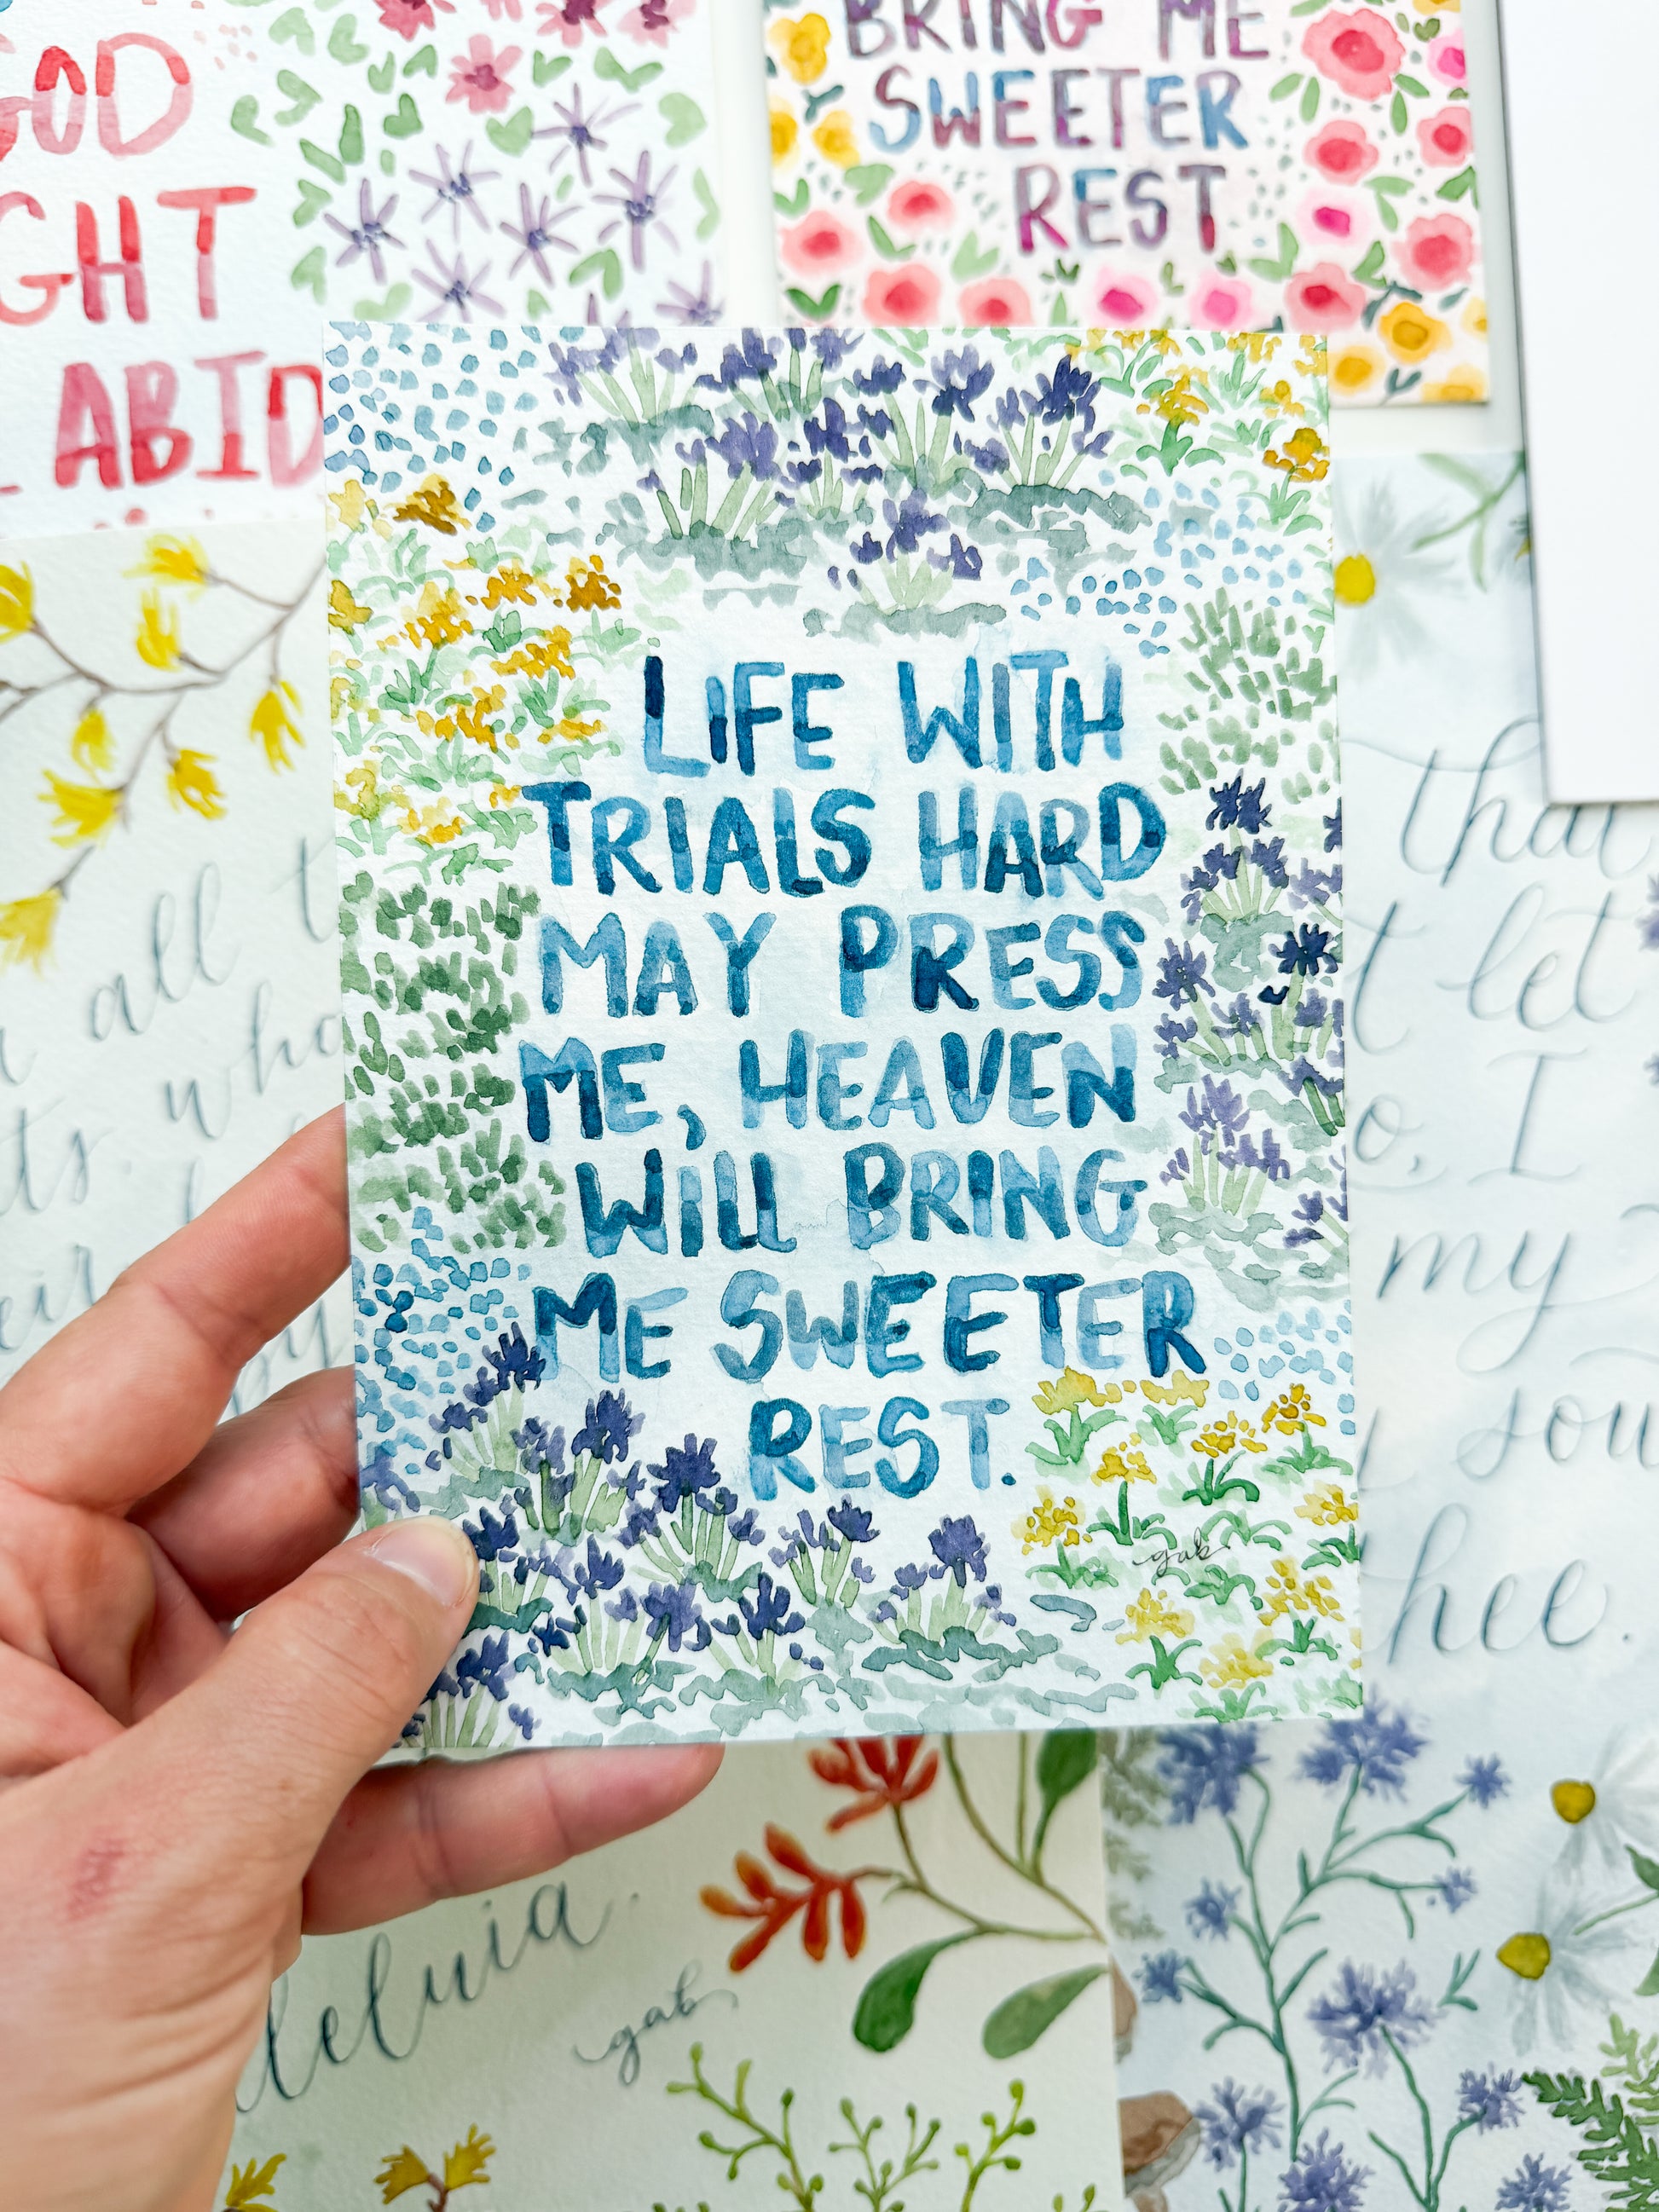 GOD
GHT
ABID
BRING ME
SWEETER
REST
LIFE WITH
TRIALS HARD
MAY PRESS
ME, HEAVEN
WILL BRING
ME SWEETER
REST.
gab
all t
who
that
let
o, I
my
sou
hee.
leluia.
gab